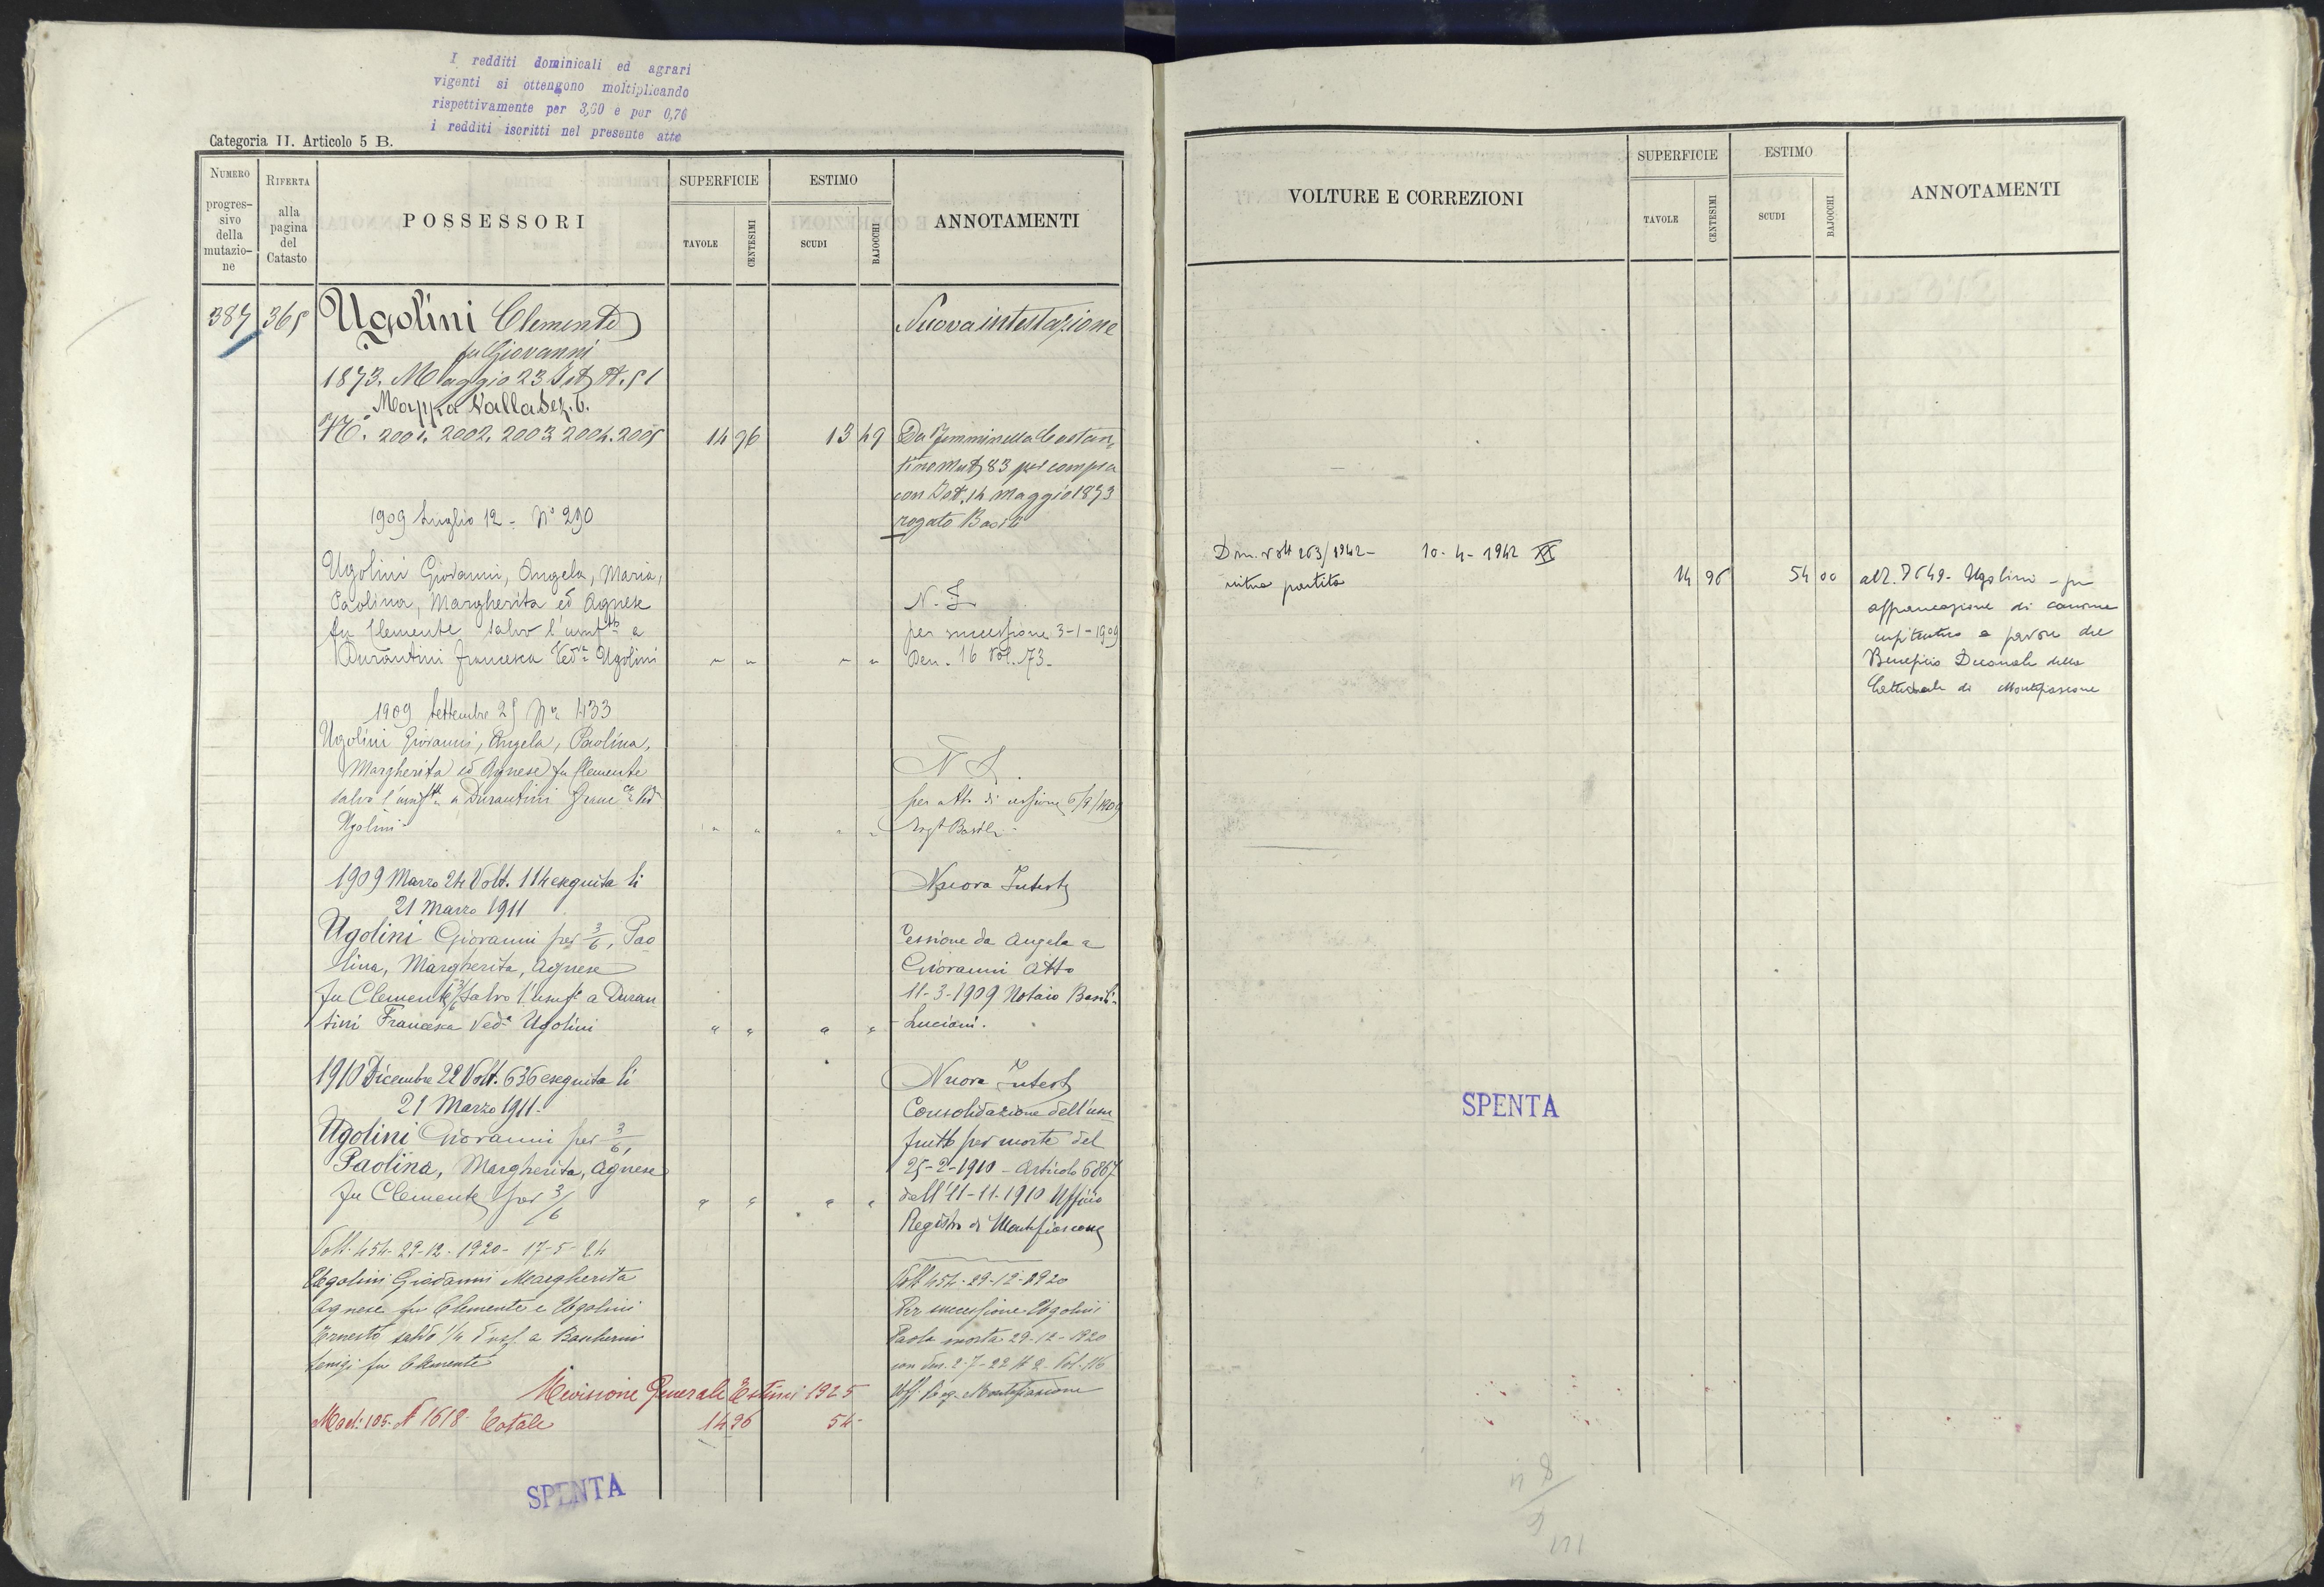 I redditi dominicali ed agrari
vigenti si ottengono moltiplicando
rispettivamente per 3,60 e per 0,76
i redditi iscritti nel presente atto
Categoria II. Articolo 5 B.
NUMERO progressivo della mutazione
RIFERTA alla pagina del Catasto
POSSESSORI
SUPERFICIE
TAVOLE
CENTESIMI
ESTIMO
SCUDI
BAJOCCHI
ANNOTAMENTI
387 365 Ugolini Clemente Nuova intestazione
fu Giovanni
1873. Maggio 23 Ist. N. 51
Mappa Valla Sez. 6.
N. 2001. 2002. 2003 2004. 2005 14 96 13 49 Da Femminella Costan
tino Mut 83 per compra
con Ist. 14 Maggio 1873
rogato Basili
1909 Luglio 12 - N° 290
Ugolini Giovanni, Angela, Maria,
Paolina, Margherita ed Agnese N. I.
fu Clemente salvo l'usuftto a per successione 3-1-1909
Durantini Francesca Veda Ugolini " " " " Den. 16 Vol. 73-
1909 Settembre 25 N° 433
Ugolini Giovanni, Angela, Paolina,
Margherita ed Agnese fu Clemente N. I.
salvo l'usuftto a Durantini Franca Veda per atto di cessione 6/9/1909
Ugolini " " " " Rogt Basili
1909 Marzo 24 Volt. 114 eseguita li Nuova Intest
21 Marzo 1911
Ugolini Giovanni per 3/6, Pao Cessione da Angela a
lina, Margherita, Agnese Giovanni Atto
fu Clemente 3/6 salvo l'usuft a Duran 11-3-1909 Notaio Basili
tini Francesca Veda Ugolini " " " " Luciani.
1910 Dicembre 22 Volt. 636 eseguita li Nuova Intest
21 Marzo 1911. Consolidazione dell'usu
Ugolini Giovanni per 3/6, frutto per morte del
Paolina, Margherita, Agnese 25-2-1910 - Articolo 6867
fu Clemente per 3/6 " " " " dell'11-11-1910 Ufficio
Registro di Montefiascone
Volt. 454-29-12-1920- 17-5-24
Ugolini Giovanni Margherita Volt 454-29-12-1920
Agnese fu Clemente e Ugolini Per successione Ugolini
Ernesto salvo 1/4 d'usf. a Paola morta 29-12-1920
fu Clemente con den. 2-7-22 N 2 Vol. 116
Revisione Generale Estimi 1925 Uff. Reg. Montefiascone
Mod. 105. N 1618 Totale 14 96 54-
SPENTA
VOLTURE E CORREZIONI
SUPERFICIE
TAVOLE
CENTESIMI
ESTIMO
SCUDI
BAJOCCHI
ANNOTAMENTI
Dim. volt 263/1942- 10-4-1942 XX
intera partita 14 96 54 00 all. 7649- Ugolini - per
affrancazione di canone
enfiteutico a favore del
Beneficio Decanale della
Cattedrale di Montefiascone
SPENTA